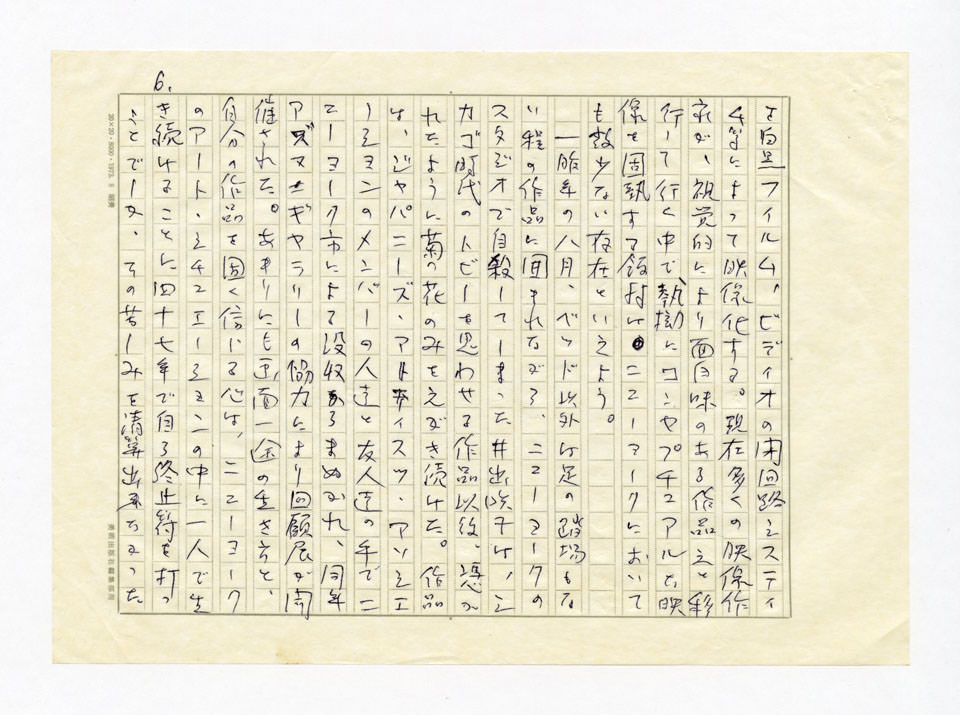 6.
を白黒フィルム、ビディオの閉回路システィ
4等によって映像化する。現在多くの映像作
家が、視覚的により面白味のある作品えと移
行して行く中で、執拗にコンセプチュアルを映
像を固執する飯村は ニューヨークにおいて
も数少ない存在といえよう。
一昨年の八月、ベッド以外は足の踏場もな
い程の作品に囲まれながら、ニューヨークの
スタジオで自殺してしまった井出 子は、シ
カゴ時代のトビーを思わせる作品以後、憑か
れたように菊の花のみをえがき続けた。作品
は、ジャパニーズ・アーティスツ・アソシエ
ーションのメンバーの人達と友人達の手でニ
ューヨーク市による没収からまぬがれ、同年
アズマギャラリーの協力により回顧展が開
催された。あまりにも画面一途の生き方と、
自分の作品を固く信じる心は、ニューヨーク
のアート・シチュエーションの中に一人で生
き続けることに四十七年で自ら終止符を打っ
ことでしか、その苦しみを清算出来なかった
20×20
美術出版社編集部用